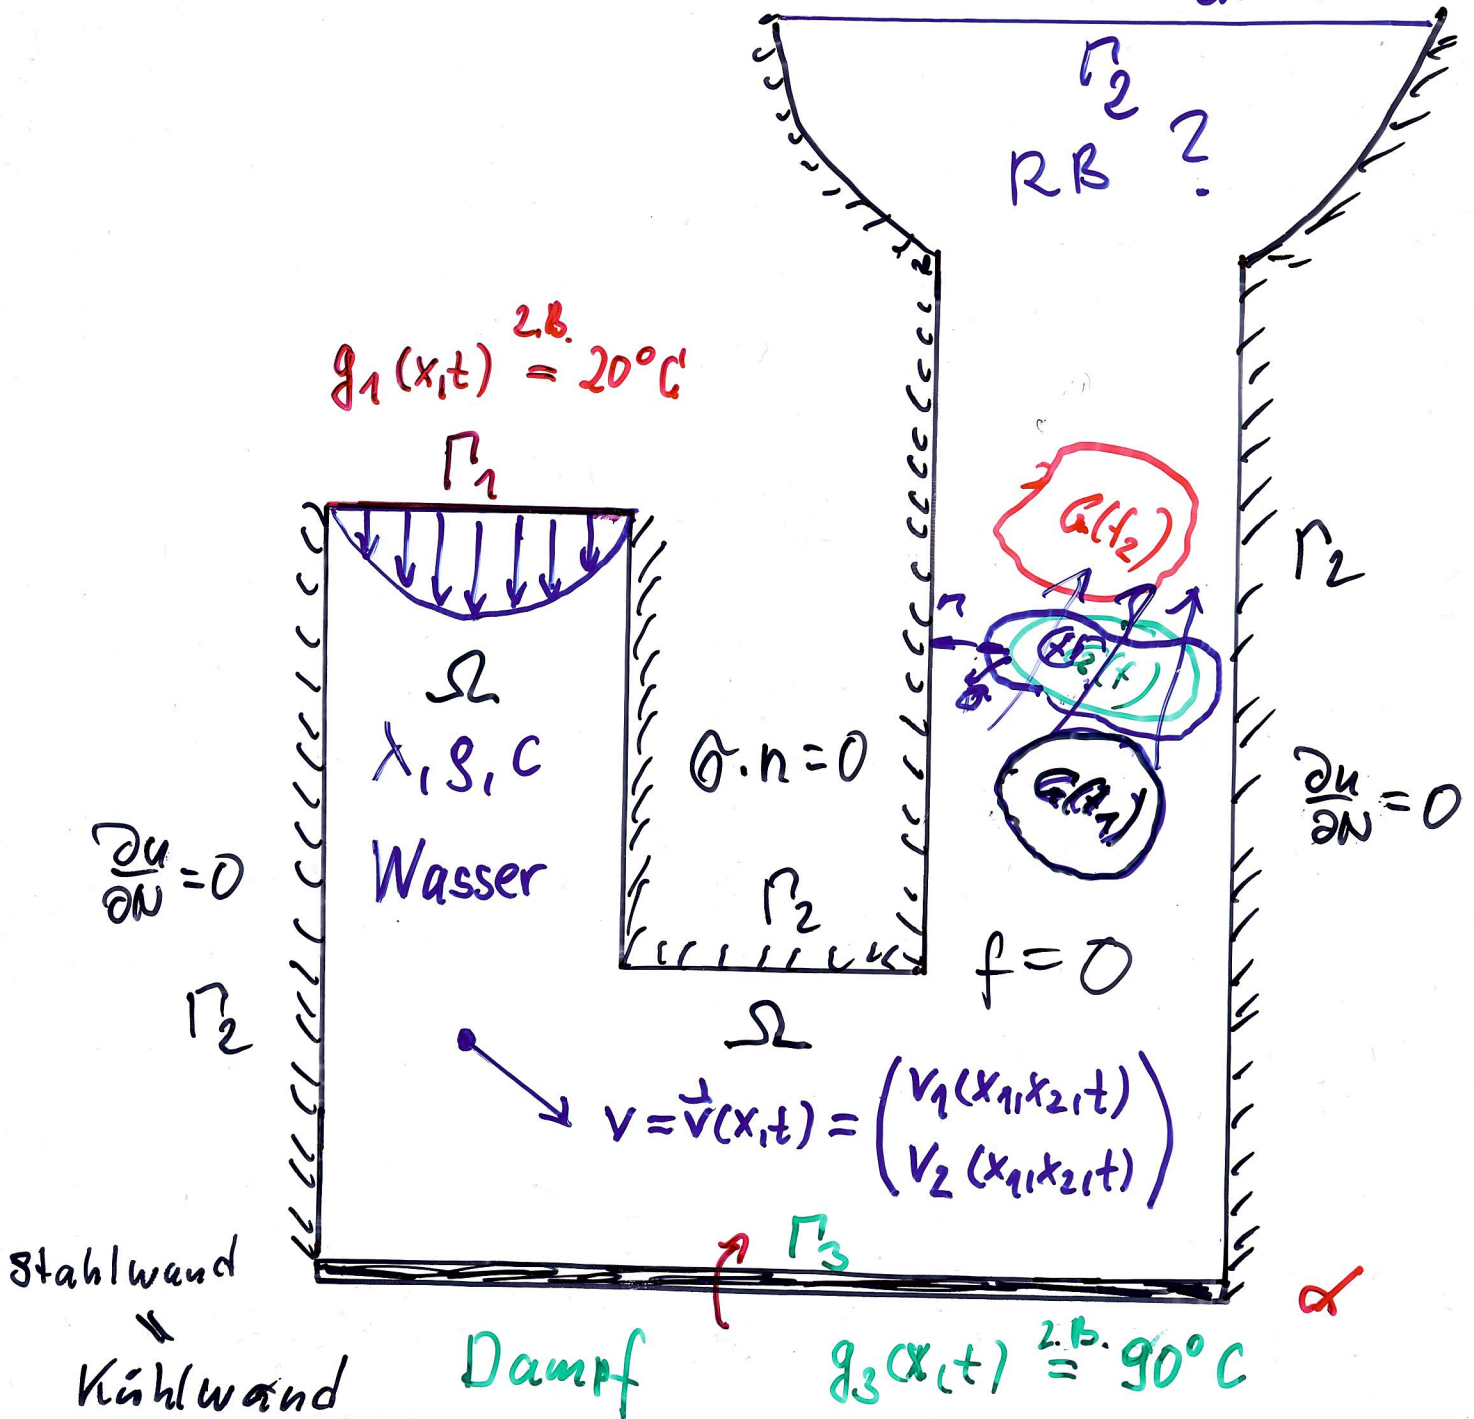 Γ₂
RB ?
g₁(x,t) z.B. = 20°C
Γ₁
G(t₂)
Γ₂
n
Ω
λ, ρ, c
σ.n=0
G(t₁)
∂u/∂N = 0
∂u/∂N = 0
Wasser
Γ₂
f = 0
Γ₂
Ω
v = v⃗(x,t) = (v₁(x₁,x₂,t)
v₂(x₁,x₂,t))
Γ₃
Stahlwand
α
Kühlwand
Dampf
g₃(x,t) z.B. = 90°C